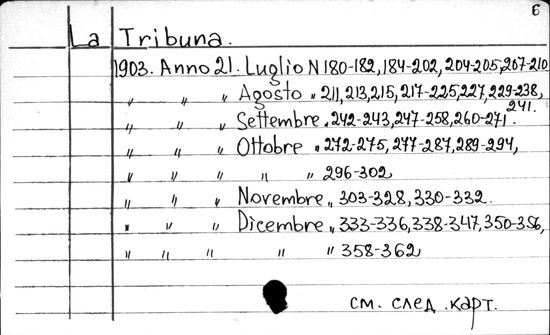 6
La Tribuna.
1903. Anno 21. Luglio N 180-182, 184-202, 204-205, 207-210
〃 〃 〃 Agosto 〃 211, 213, 215, 217-225, 227, 229-238,
241.
〃 〃 〃 Settembre 〃 242-243, 247-258, 260-271.
〃 〃 〃 Ottobre 〃 272-275, 277-287, 289-294,
〃 〃 〃 〃 〃 296-302
〃 〃 〃 Novembre 〃 303-328, 330-332.
〃 〃 〃 Dicembre 〃 333-336, 338-347, 350-356,
〃 〃 〃 〃 〃 358-362
см. след. карт.